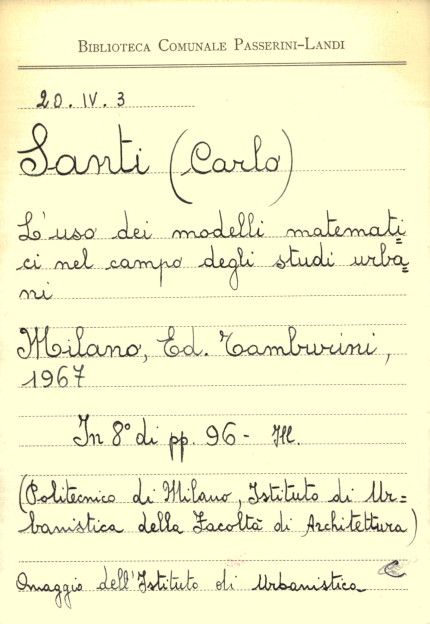 BIBLIOTECA COMUNALE PASSERINI-LANDI
20. IV. 3
Santi (Carlo)
L'uso dei modelli matemati=
ci nel campo degli studi urba=
ni
Milano, Ed. Tamburini,
1967
In 8° di pp. 96 - Ill.
(Politecnico di Milano, Istituto di Ur=
banistica della Facoltà di Architettura)
Omaggio dell'Istituto di Urbanistica